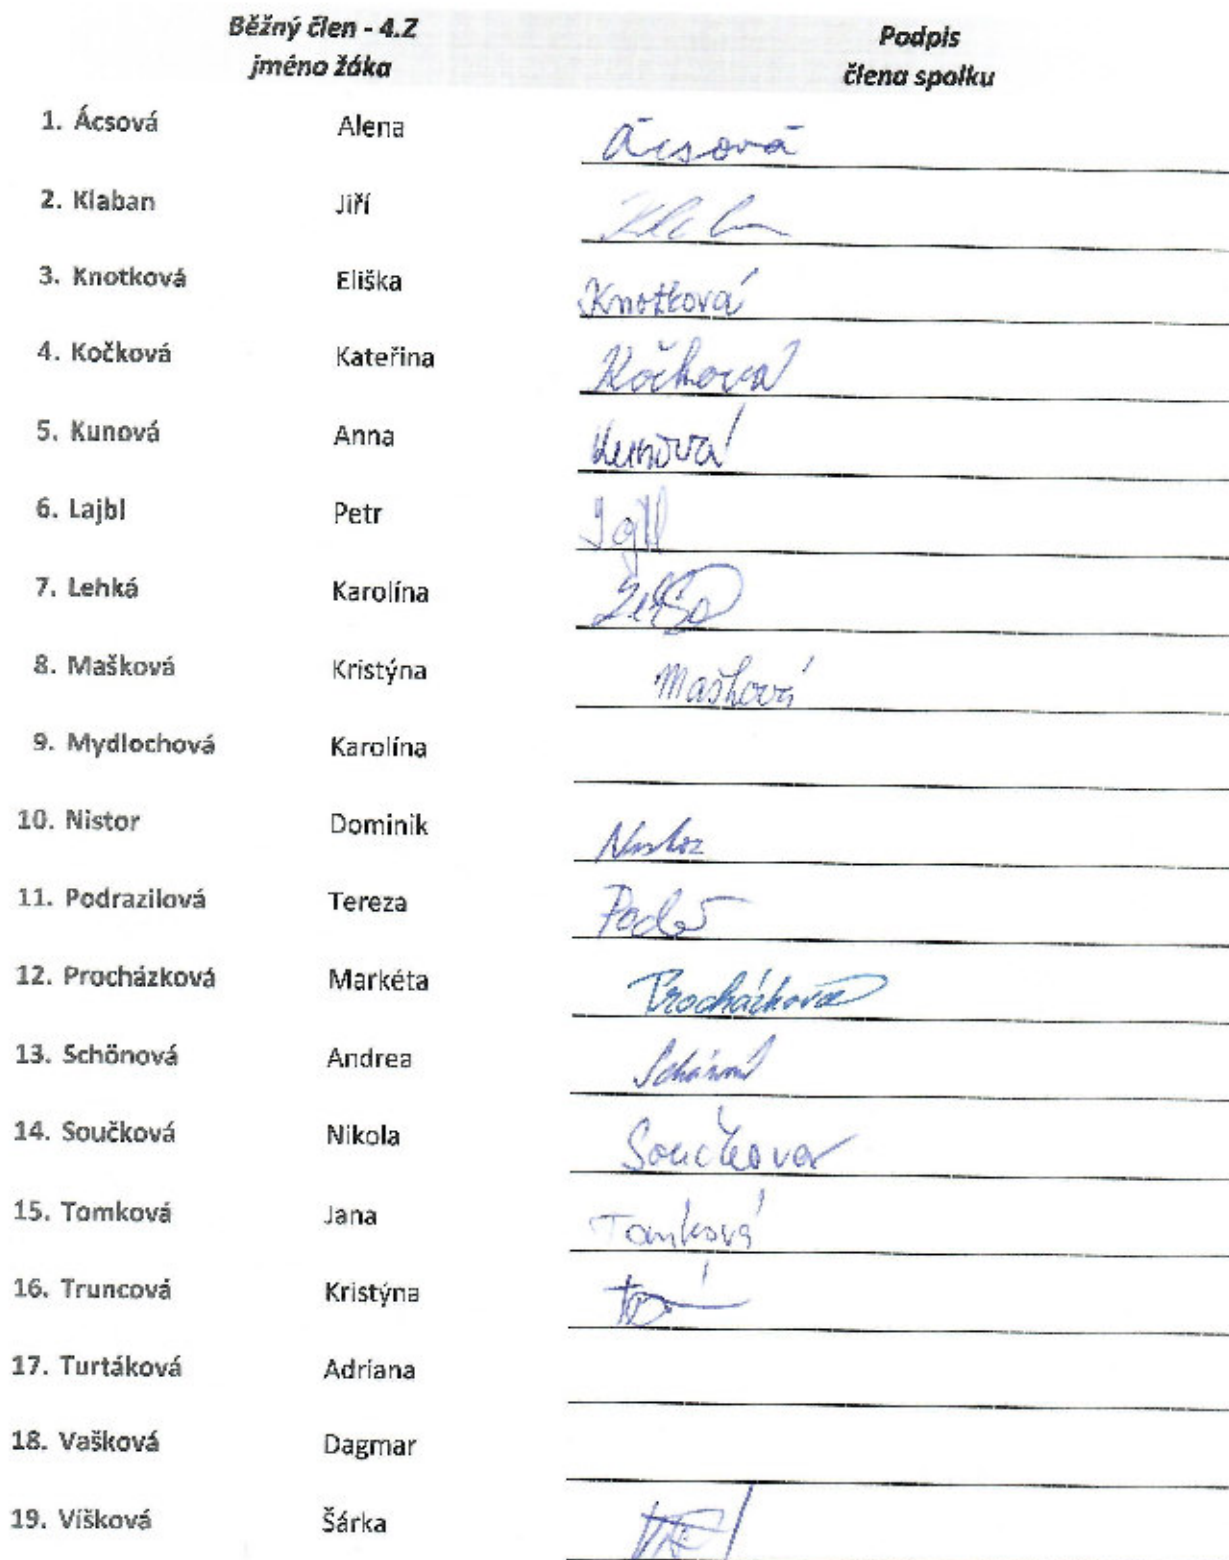 Běžný člen - 4.Z
jméno žáka
Podpis
člena spolku
1. Ácsová Alena Ácsová
2. Klaban Jiří
3. Knotková Eliška Knotková
4. Kočková Kateřina Kočková
5. Kunová Anna Kunová
6. Lajbl Petr
7. Lehká Karolína
8. Mašková Kristýna Mašková
9. Mydlochová Karolína
10. Nistor Dominik Nistor
11. Podrazilová Tereza
12. Procházková Markéta Procházková
13. Schönová Andrea
14. Součková Nikola Součková
15. Tomková Jana Tomková
16. Truncová Kristýna
17. Turtáková Adriana
18. Vašková Dagmar
19. Víšková Šárka